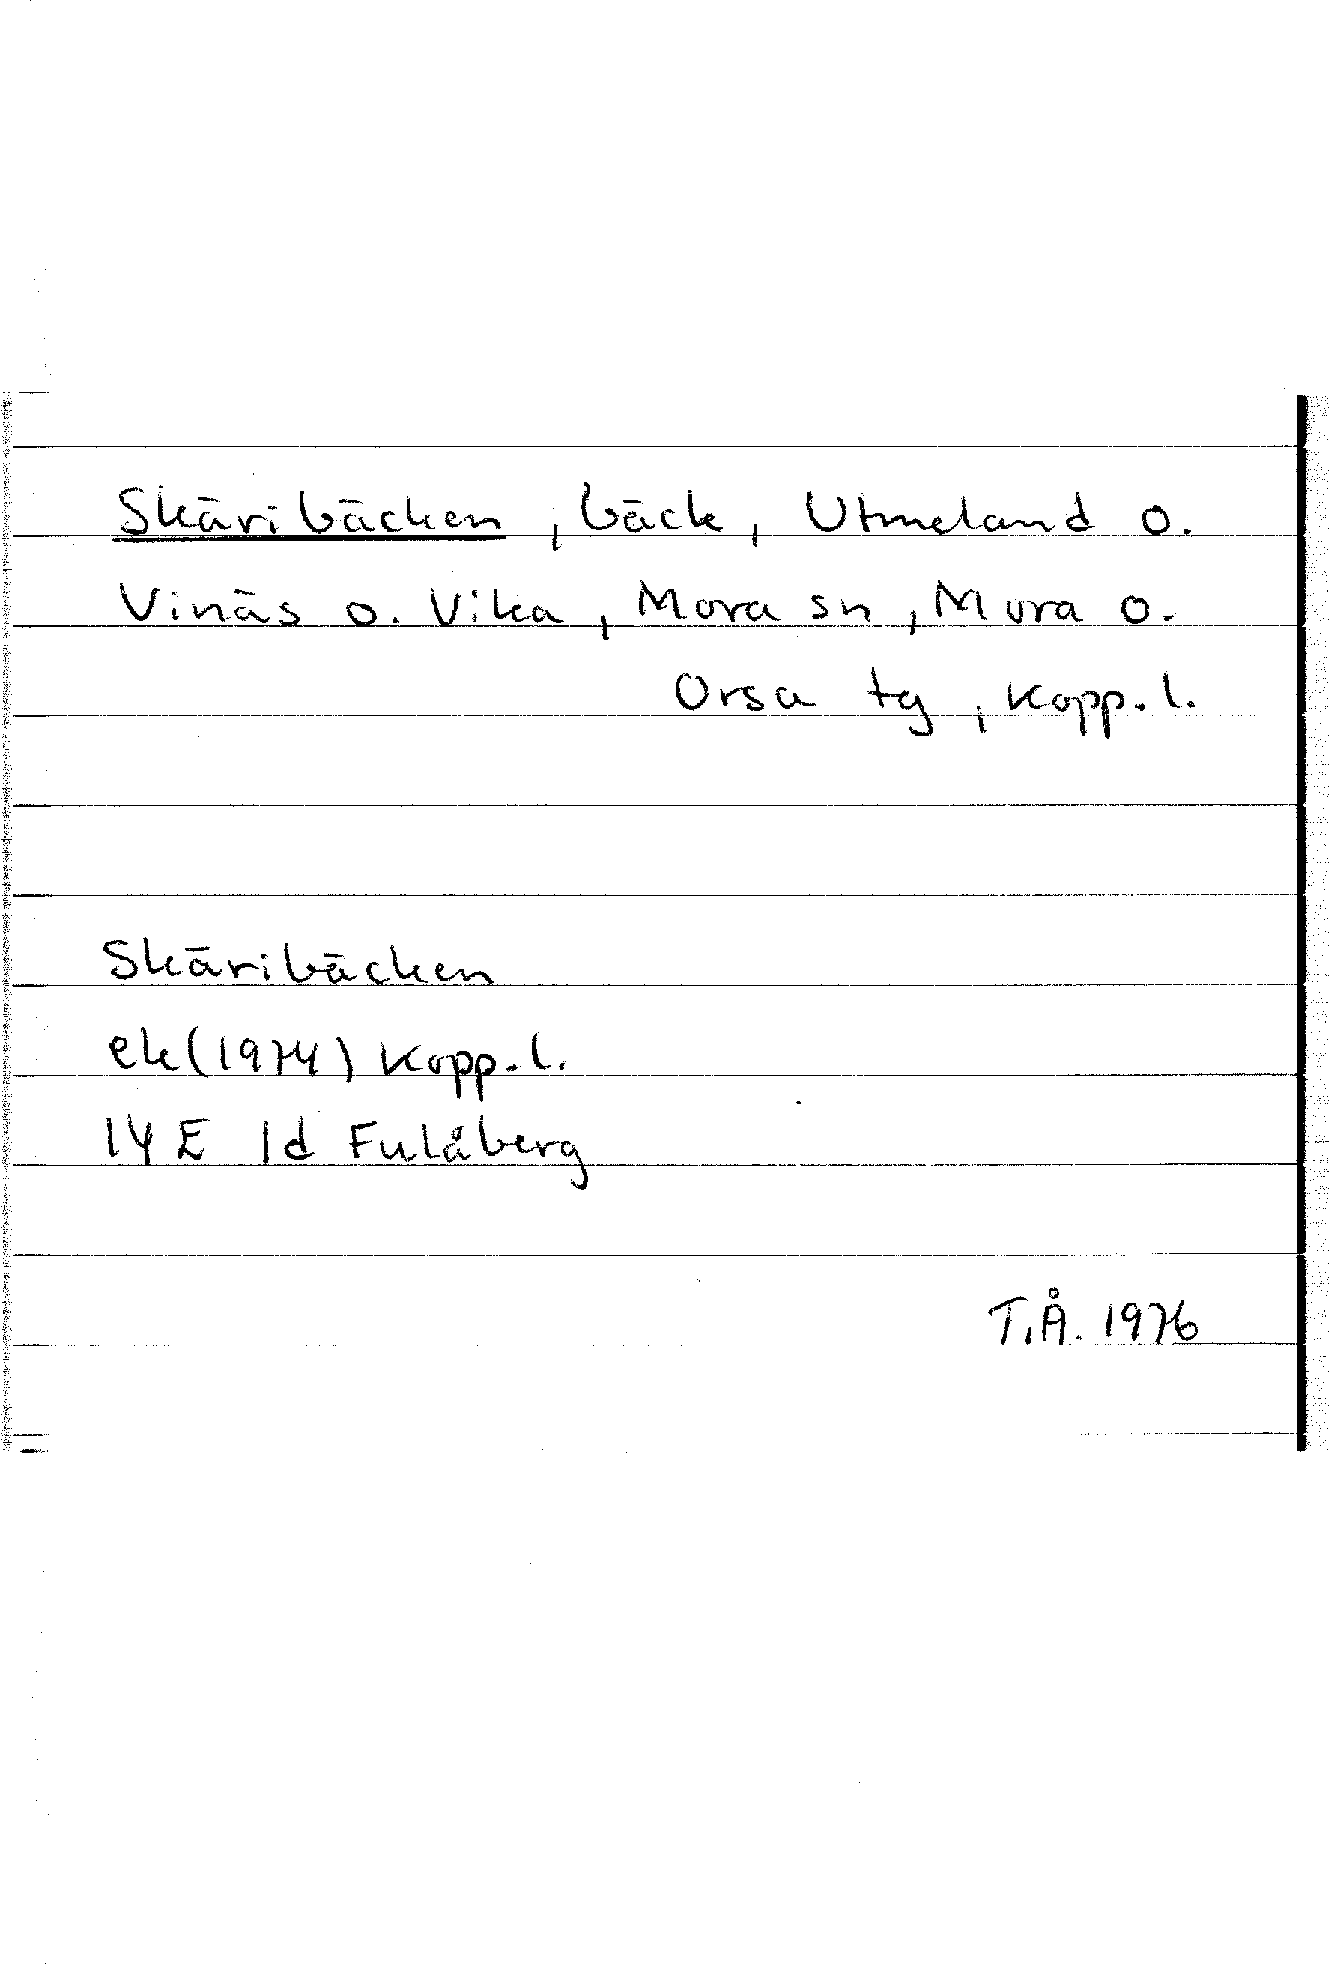 Skäribäcken, bäck, Utmeland o.
Vinäs o. Vika, Mora sn, Mora o.
Orsa tg, Kopp.l.
Skäribäcken
ek(1974) Kopp.l.
14E 1d Fulåberg
T.Å. 1976